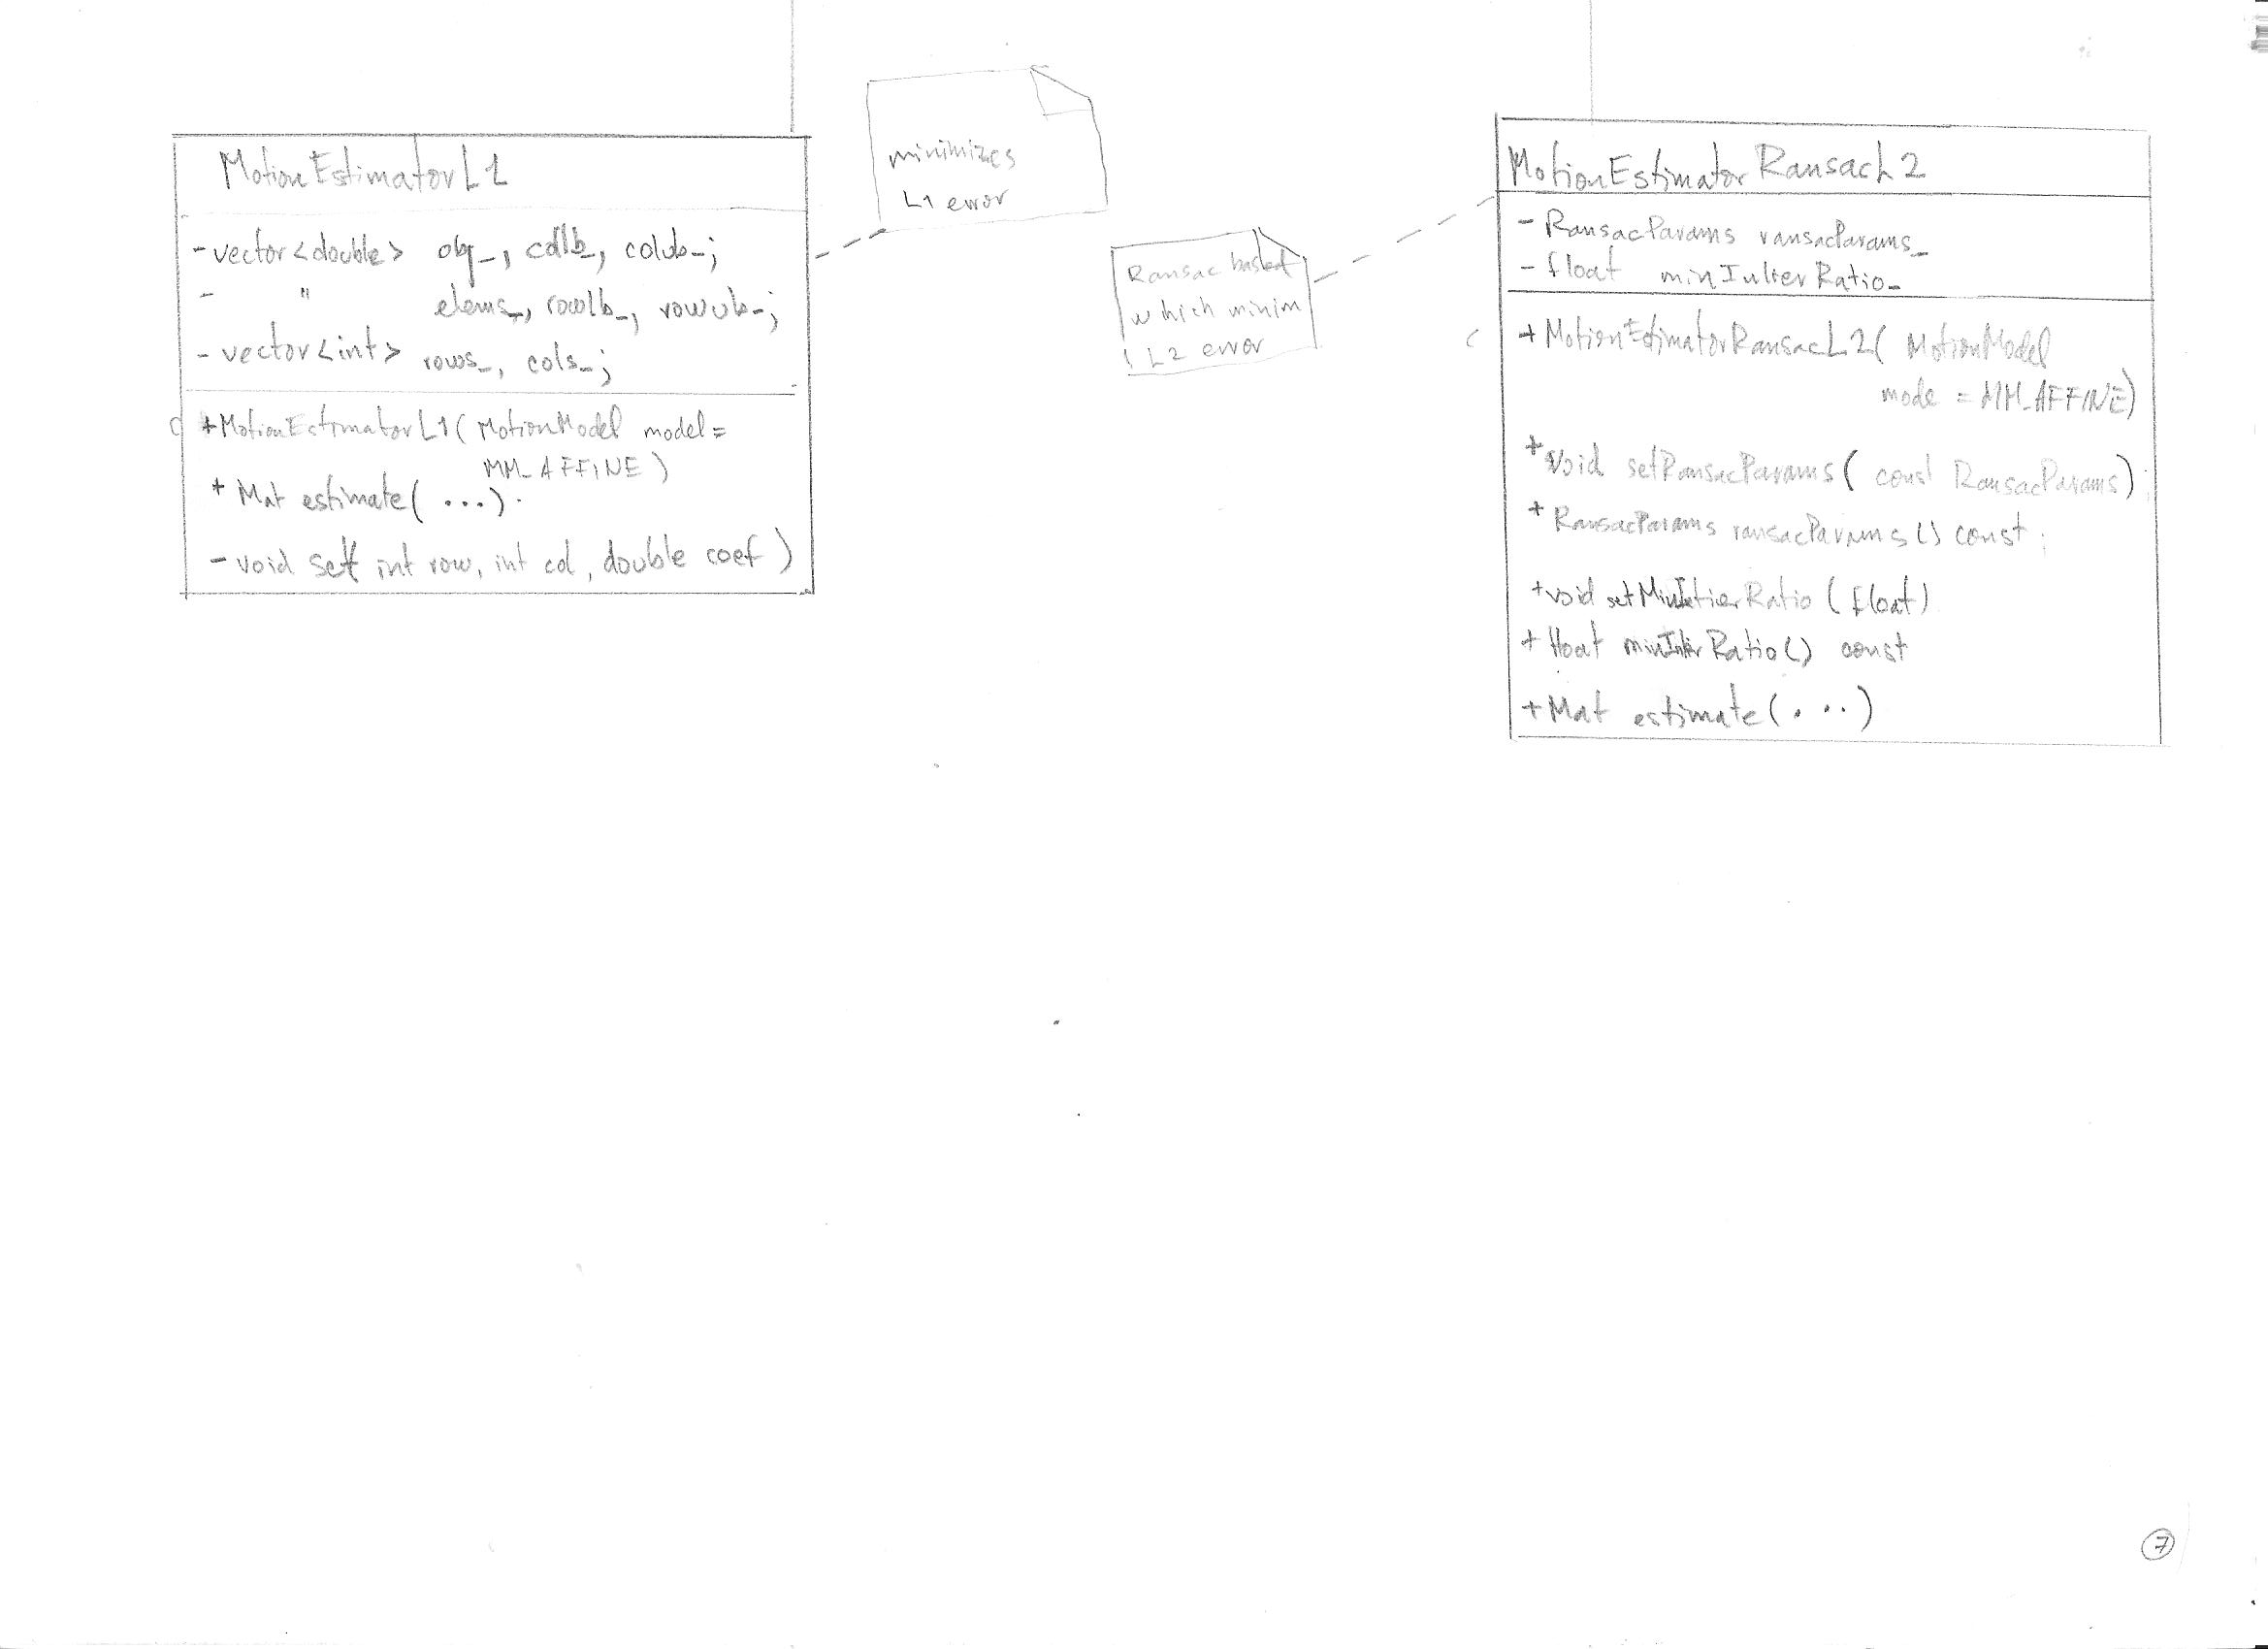 MotionEstimatorL1
- vector<double> obj_, collb_, colub_;
- " elems_, rowlb_, rowub_;
- vector<int> rows_, cols_;
+ MotionEstimatorL1( MotionModel model=
MM_AFFINE)
+ Mat estimate( ...)
- void set( int row, int col, double coef )
minimizes
L1 error
Ransac based
which minim
L2 error
MotionEstimatorRansacL2
- RansacParams ransacParams_
- float minInlierRatio_
+ MotionEstimatorRansacL2( MotionModel
mode = MM_AFFINE)
+ void setRansacParams( const RansacParams);
+ RansacParams ransacParams() const;
+ void setMinInlierRatio (float)
+ float minInlierRatio() const
+ Mat estimate(...)
7